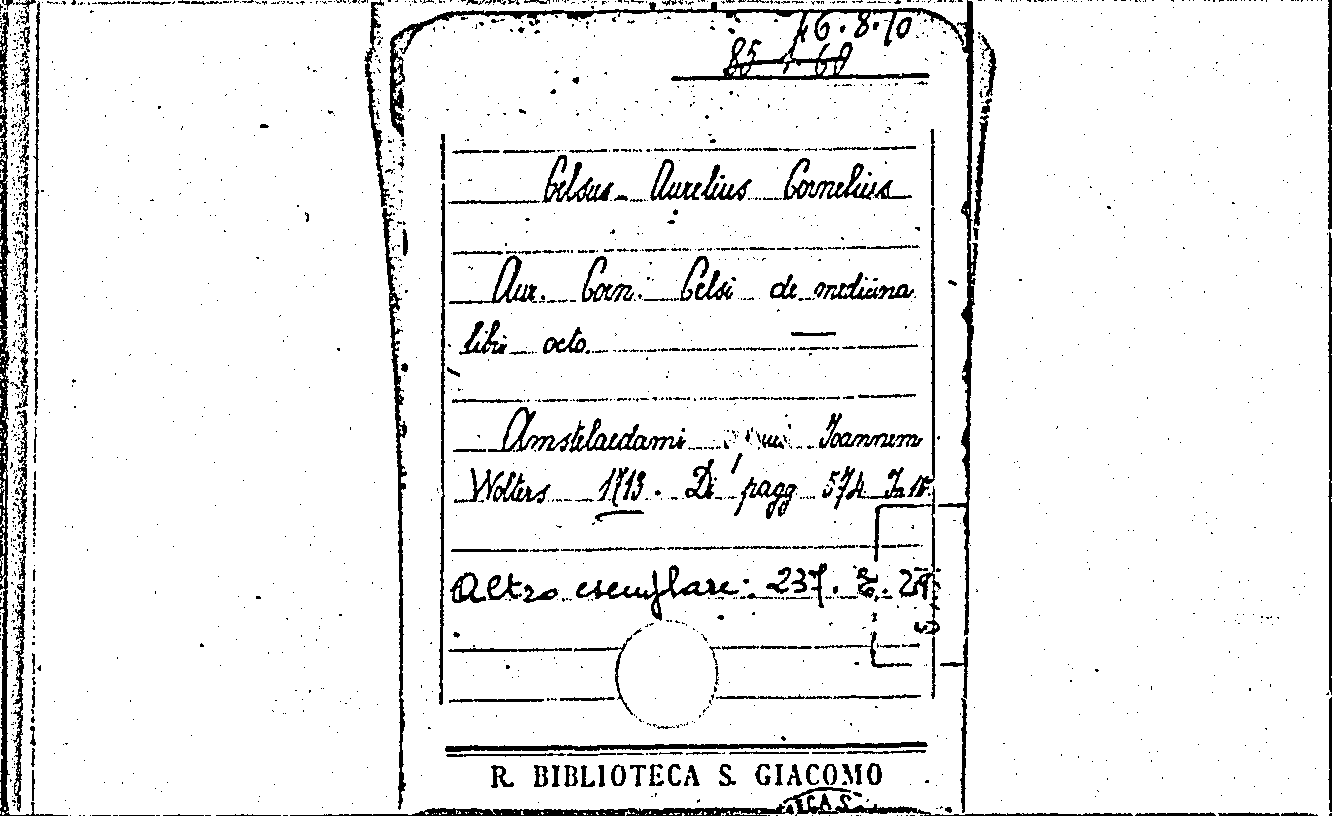 16.8.10
85 1 68
Celsus Aurelius Cornelius
Aur. Corn. Celsi de medicina
libri octo.
Amstelaedami apud Joannem
Wolters 1713. Di pagg 574 In 18°
Altro esemplare: 237. E. 29
R. BIBLIOTECA S. GIACOMO
ECA S.